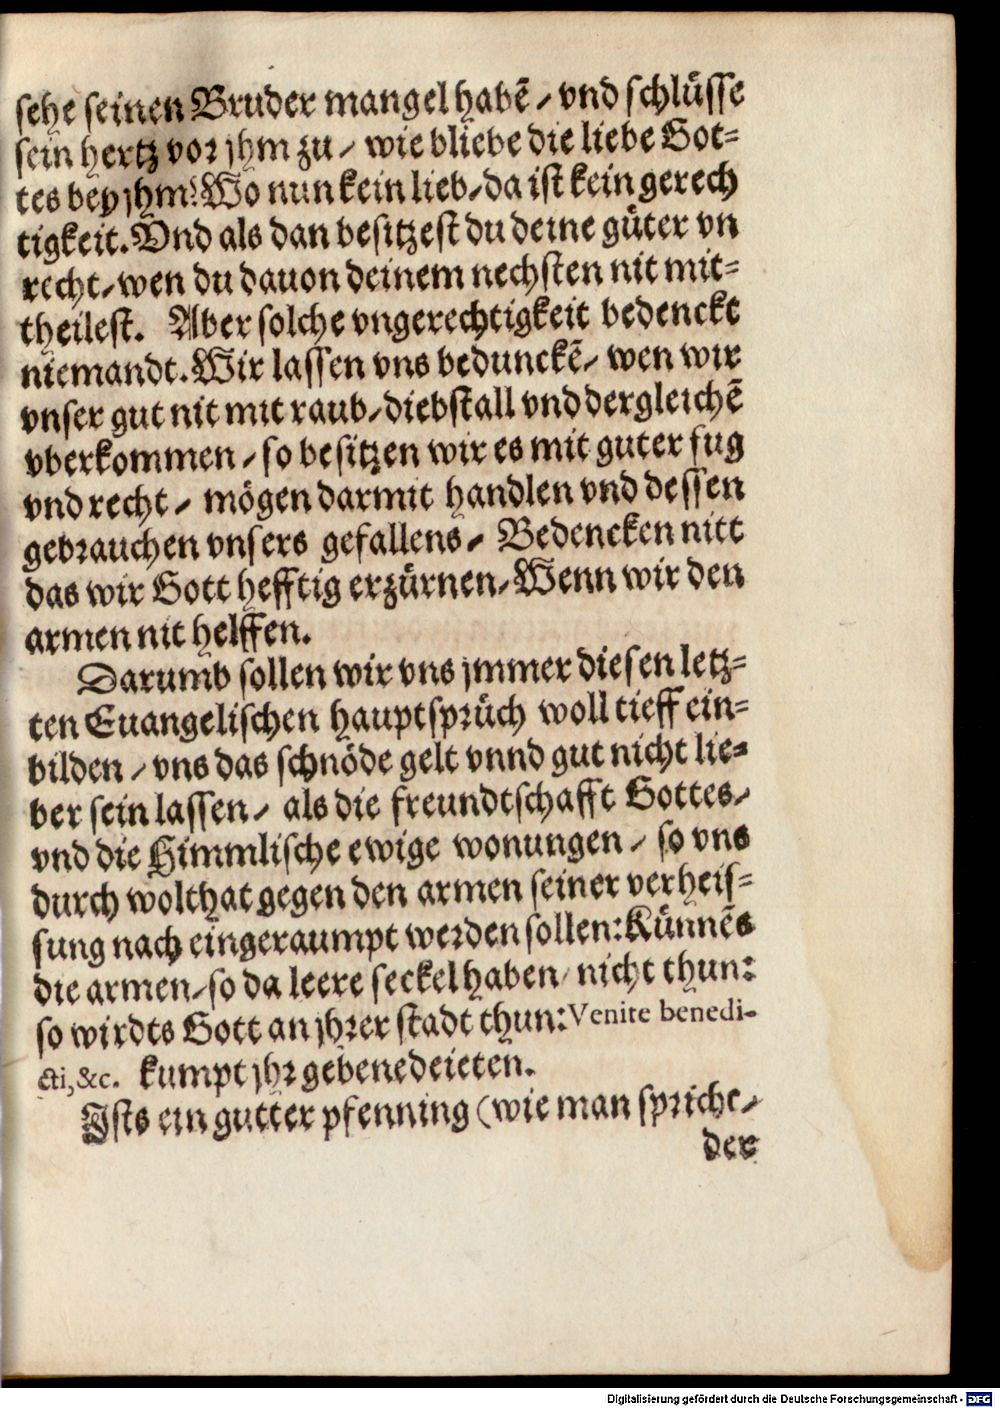 sehe seinen Bruder mangel habẽ / vnd schlüsse
sein hertz vor jhm zu / wie bliebe die liebe Got=
tes bey jhm? Wo nun kein lieb / da ist kein gerech
tigkeit. Vnd als dan besitzest du deine güter vn
recht / wen du dauon deinem nechsten nit mit=
theilest. Aber solche vngerechtigkeit bedenckt
niemandt. Wir lassen vns bedunckẽ / wen wir
vnser gut nit mit raub / diebstall vnd dergleichẽ
vberkommen / so besitzen wir es mit guter fug
vnd recht / mögen darmit handlen vnd dessen
gebrauchen vnsers gefallens / Bedencken nitt
das wir Gott hefftig erzürnen / Wenn wir den
armen nit helffen.
Darumb sollen wir vns jmmer diesen letz=
ten Euangelischen hauptsprüch woll tieff ein=
bilden / vns das schnöde gelt vnnd gut nicht lie=
ber sein lassen / als die freundtschafft Gottes /
vnd die Himmlische ewige wonungen / so vns
durch wolthat gegen den armen seiner verheis=
sung nach eingeraumpt werden sollen: Künnẽs
die armen / so da leere seckel haben / nicht thun:
so wirdts Gott an jhrer stadt thun: Venite benedi-
cti, &c. kumpt jhr gebenedeieten.
Ists ein gutter pfenning (wie man spricht /
der
Digitalisierung gefördert durch die Deutsche Forschungsgemeinschaft - DFG